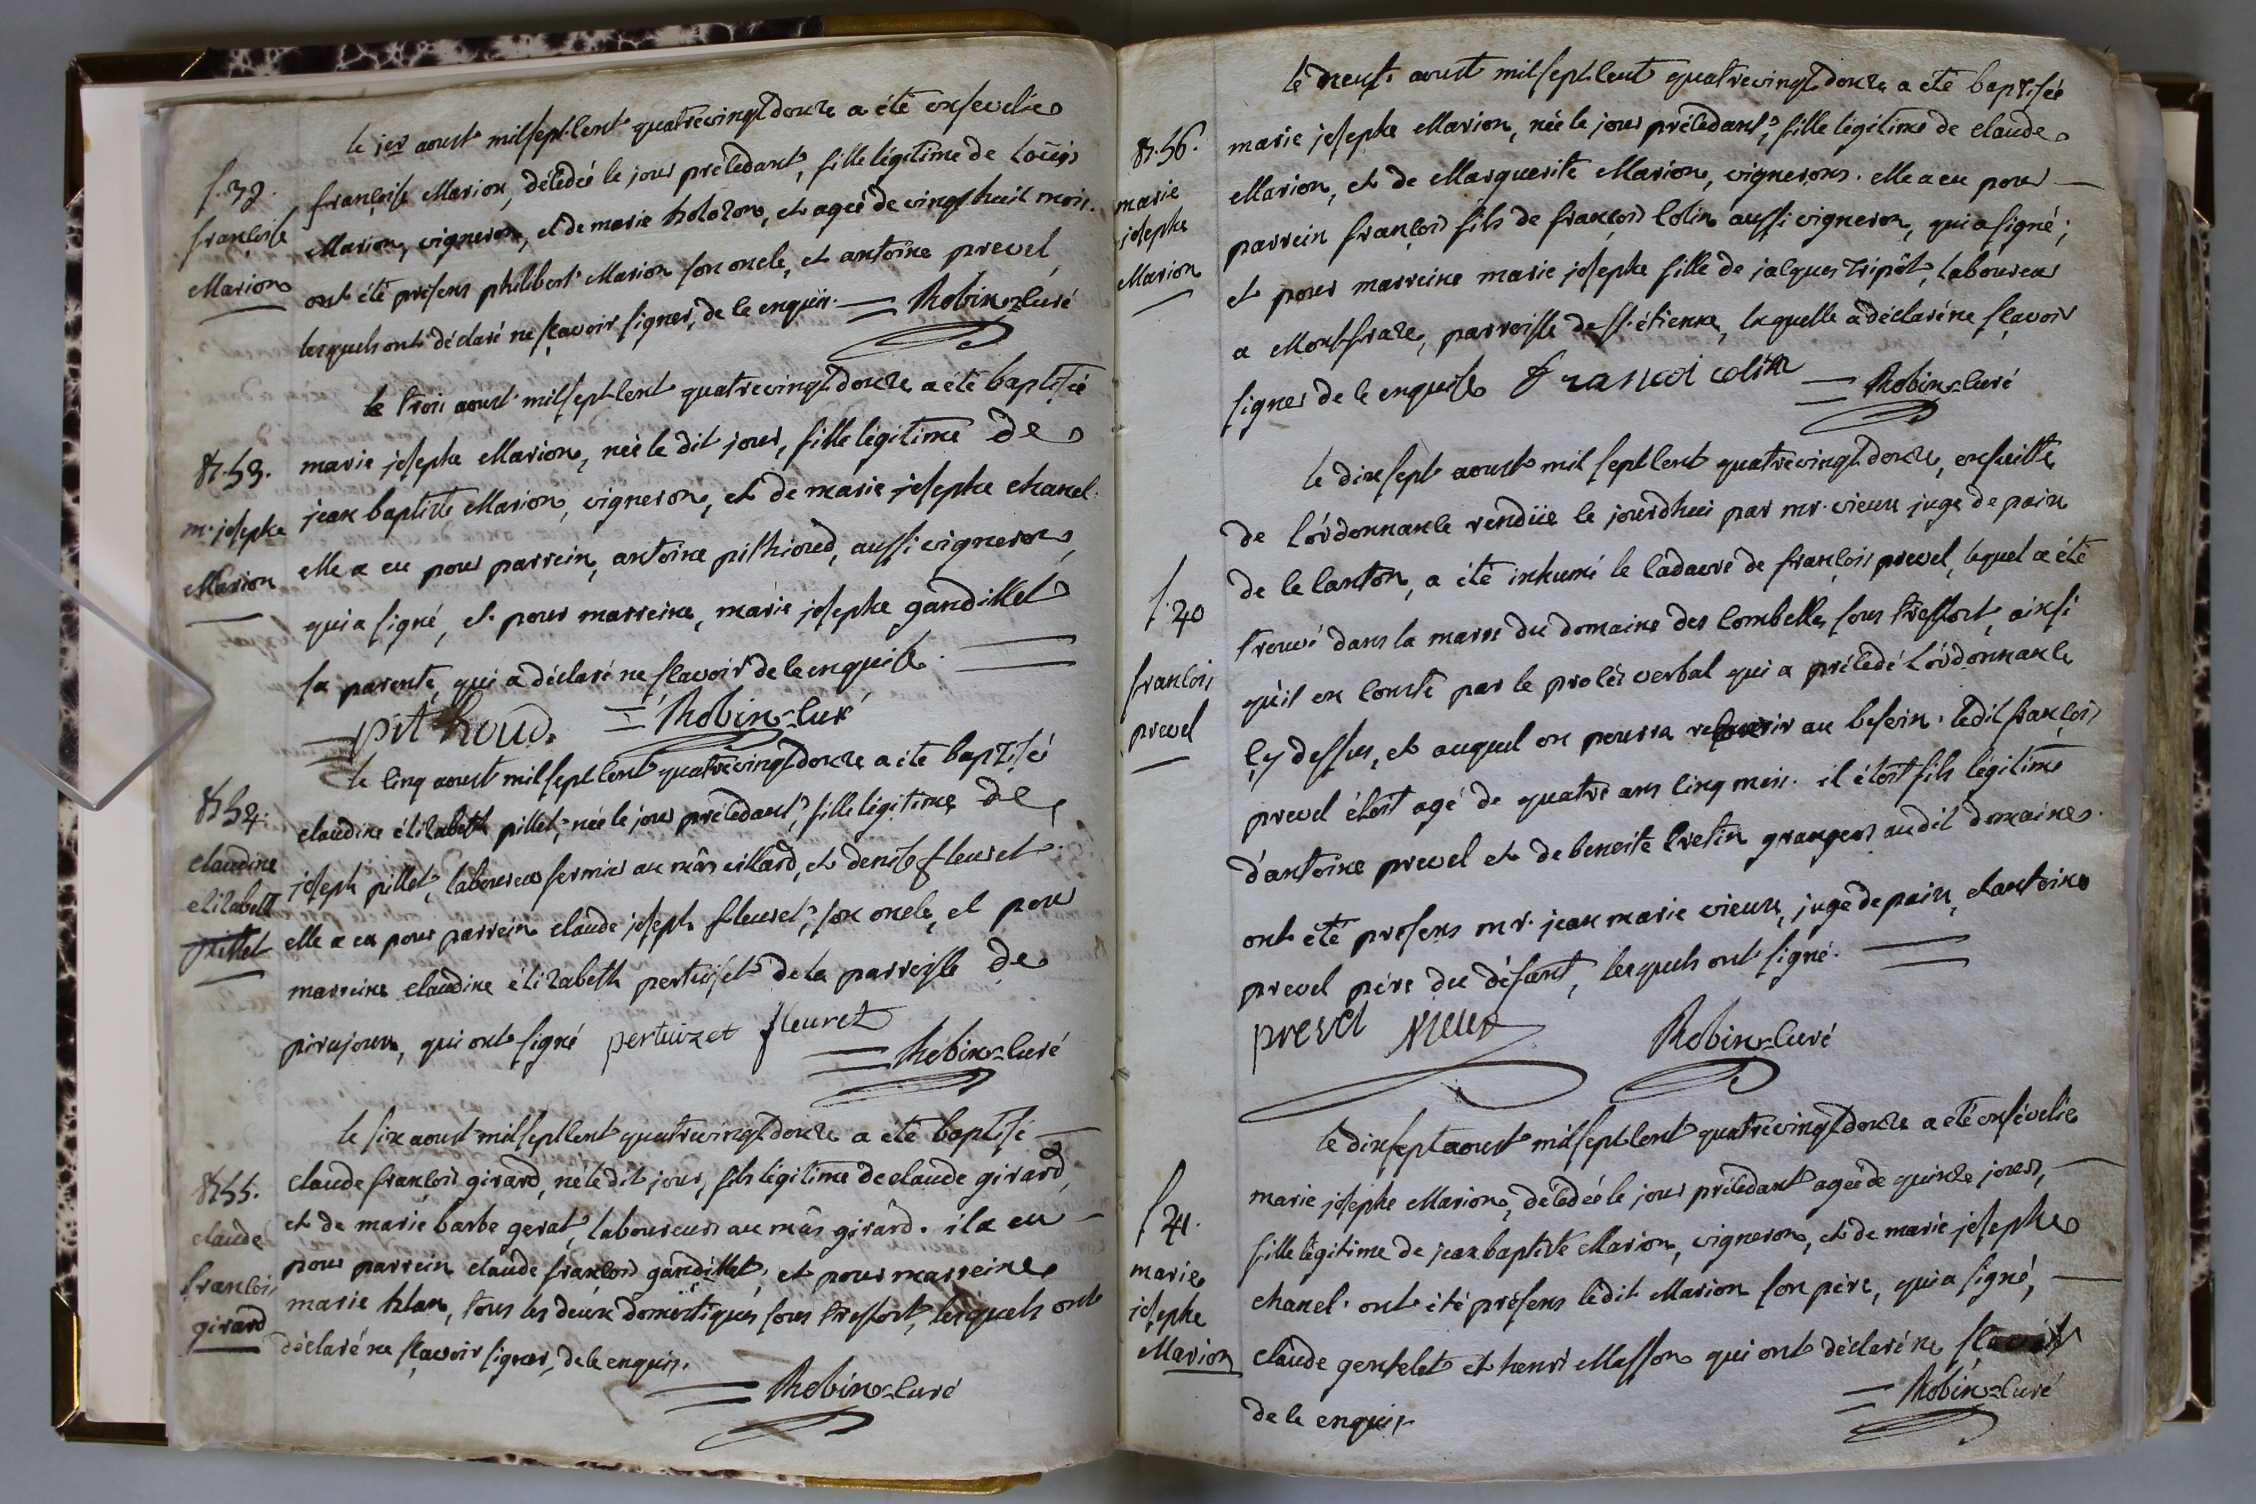 le 1er aoust mil sept cent quatrevingt douze a été ensevelie
s. 39.
françoise
Marion
françoise Marion, décédée le jour précédant, fille légitime de Loüis
Marion, vigneron, et de marie holozon, et agée de vingt huit mois.
ont été présens philibert Marion son oncle, et antoine prevel
lesquels ont déclaré ne sçavoir signer, de ce enquis. Robin curé
le trois aoust mil sept cent quatrevingt douze a été baptisée
B. 53.
m. josephe
Marion
marie josephe Marion, née le dit jour, fille légitime de
jean baptiste Marion, vigneron, et de marie josephe chanel.
elle a eu pour parrein, antoine pithioud, aussi vigneron,
qui a signé, et pour marreine, marie josephe gandillet
sa parente, qui a déclaré ne sçavoir de ce enquise.
pithoud. Robin curé
le cinq aoust mil sept cent quatrevingt douze a été baptisé
B 54.
claudine
elizabeth
pillet
claudine élizabeth pillet, née le jour précédant, fille légitime de
joseph pillet, laboureur fermier au mâs villard, et denise fleuret.
elle a eu pour parrein claude joseph fleuret, son oncle, et pour
marreine claudine élizabeth pertuiset de la parroisse de
pirajoux, qui ont signé pertuizet fleuret
Robin curé
le six aoust mil sept cent quatrevingt douze a été baptisé
B 55.
claude
françois
girard
claude françois girard, né le dit jour, fils légitime de claude girard,
et de marie barbe gerat, laboureurs au mâs girard. il a eu
pour parrein claude françois gandillet, et pour marreine
marie blan, tous les deux domestiques sous treffort, lesquels ont
déclaré ne sçavoir signer, de ce enquis.
Robin curé
le neuf aoust mil sept cent quatrevingt douze a été baptisée
B. 56.
marie
josephe
Marion
marie josephe Marion, née le jour précédant, fille légitime de claude
Marion, et de Marguerite Marion, vignerons. elle a eu pour
parrein françois fils de françois Colin aussi vigneron, qui a signé;
et pour marreine marie josephe fille de jacques tripôt, laboureur
a Montfraze, parroisse de st. étienne, laquelle a déclaré ne sçavoir
signer de ce enquise françoi colin Robin curé
le dix sept aoust mil sept cent quatrevingt douze, ensuitte
de l'órdonnance rendüe le jourdhui par mr. vieux juge de paix
s. 40
françois
prevel
de ce canton, a été inhumé le cadavre de françois prevel, lequel a été
trouvé dans la mare du domaine des Combelles sous treffort, ainsi
qu'il en conste par le procès verbal qui a précédé l'órdonnance
cy dessus, et auquel on pourra recourir au besoin. ledit françois
prevel étoit agé de quatre ans cinq mois. il étoit fils légitime
d'antoine prevel et de benoite cretin grangers audit domaine.
ont été présens mr. jean marie vieux, juge de paix, et antoine
prevel père du défunt, lesquels ont signé.
prevel vieux Robin curé
le dix sept aoust mil sept cent quatrevingt douze a été ensévelie
s 41.
marie
josephe
Marion
marie josephe Marion, décédée le jour précédant agée de quinze jours,
fille légitime de jean baptiste Marion, vigneron, et de marie josephe
chanel. ont été présens ledit Marion son père, qui a signé,
claude gentelet et henri Masson qui ont déclaré ne sçavoir
de ce enquis.
Robin curé